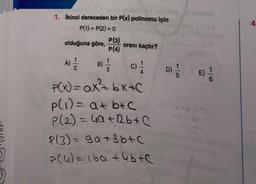 1. İkinci dereceden bir P(x) polinomu için
P(1) = P(2) = 0
olduğuna göre, P(3)/P(4) oranı kaçtır?
A) 1/2 B) 1/3 C) 1/4 D) 1/5 E) 1/6
P(x) = ax² + bx + C
P(1) = a + b + C
P(2) = 4a + 2b + C
P(3) = 9a + 3b + C
P(4) = 16a + 4b + C
4